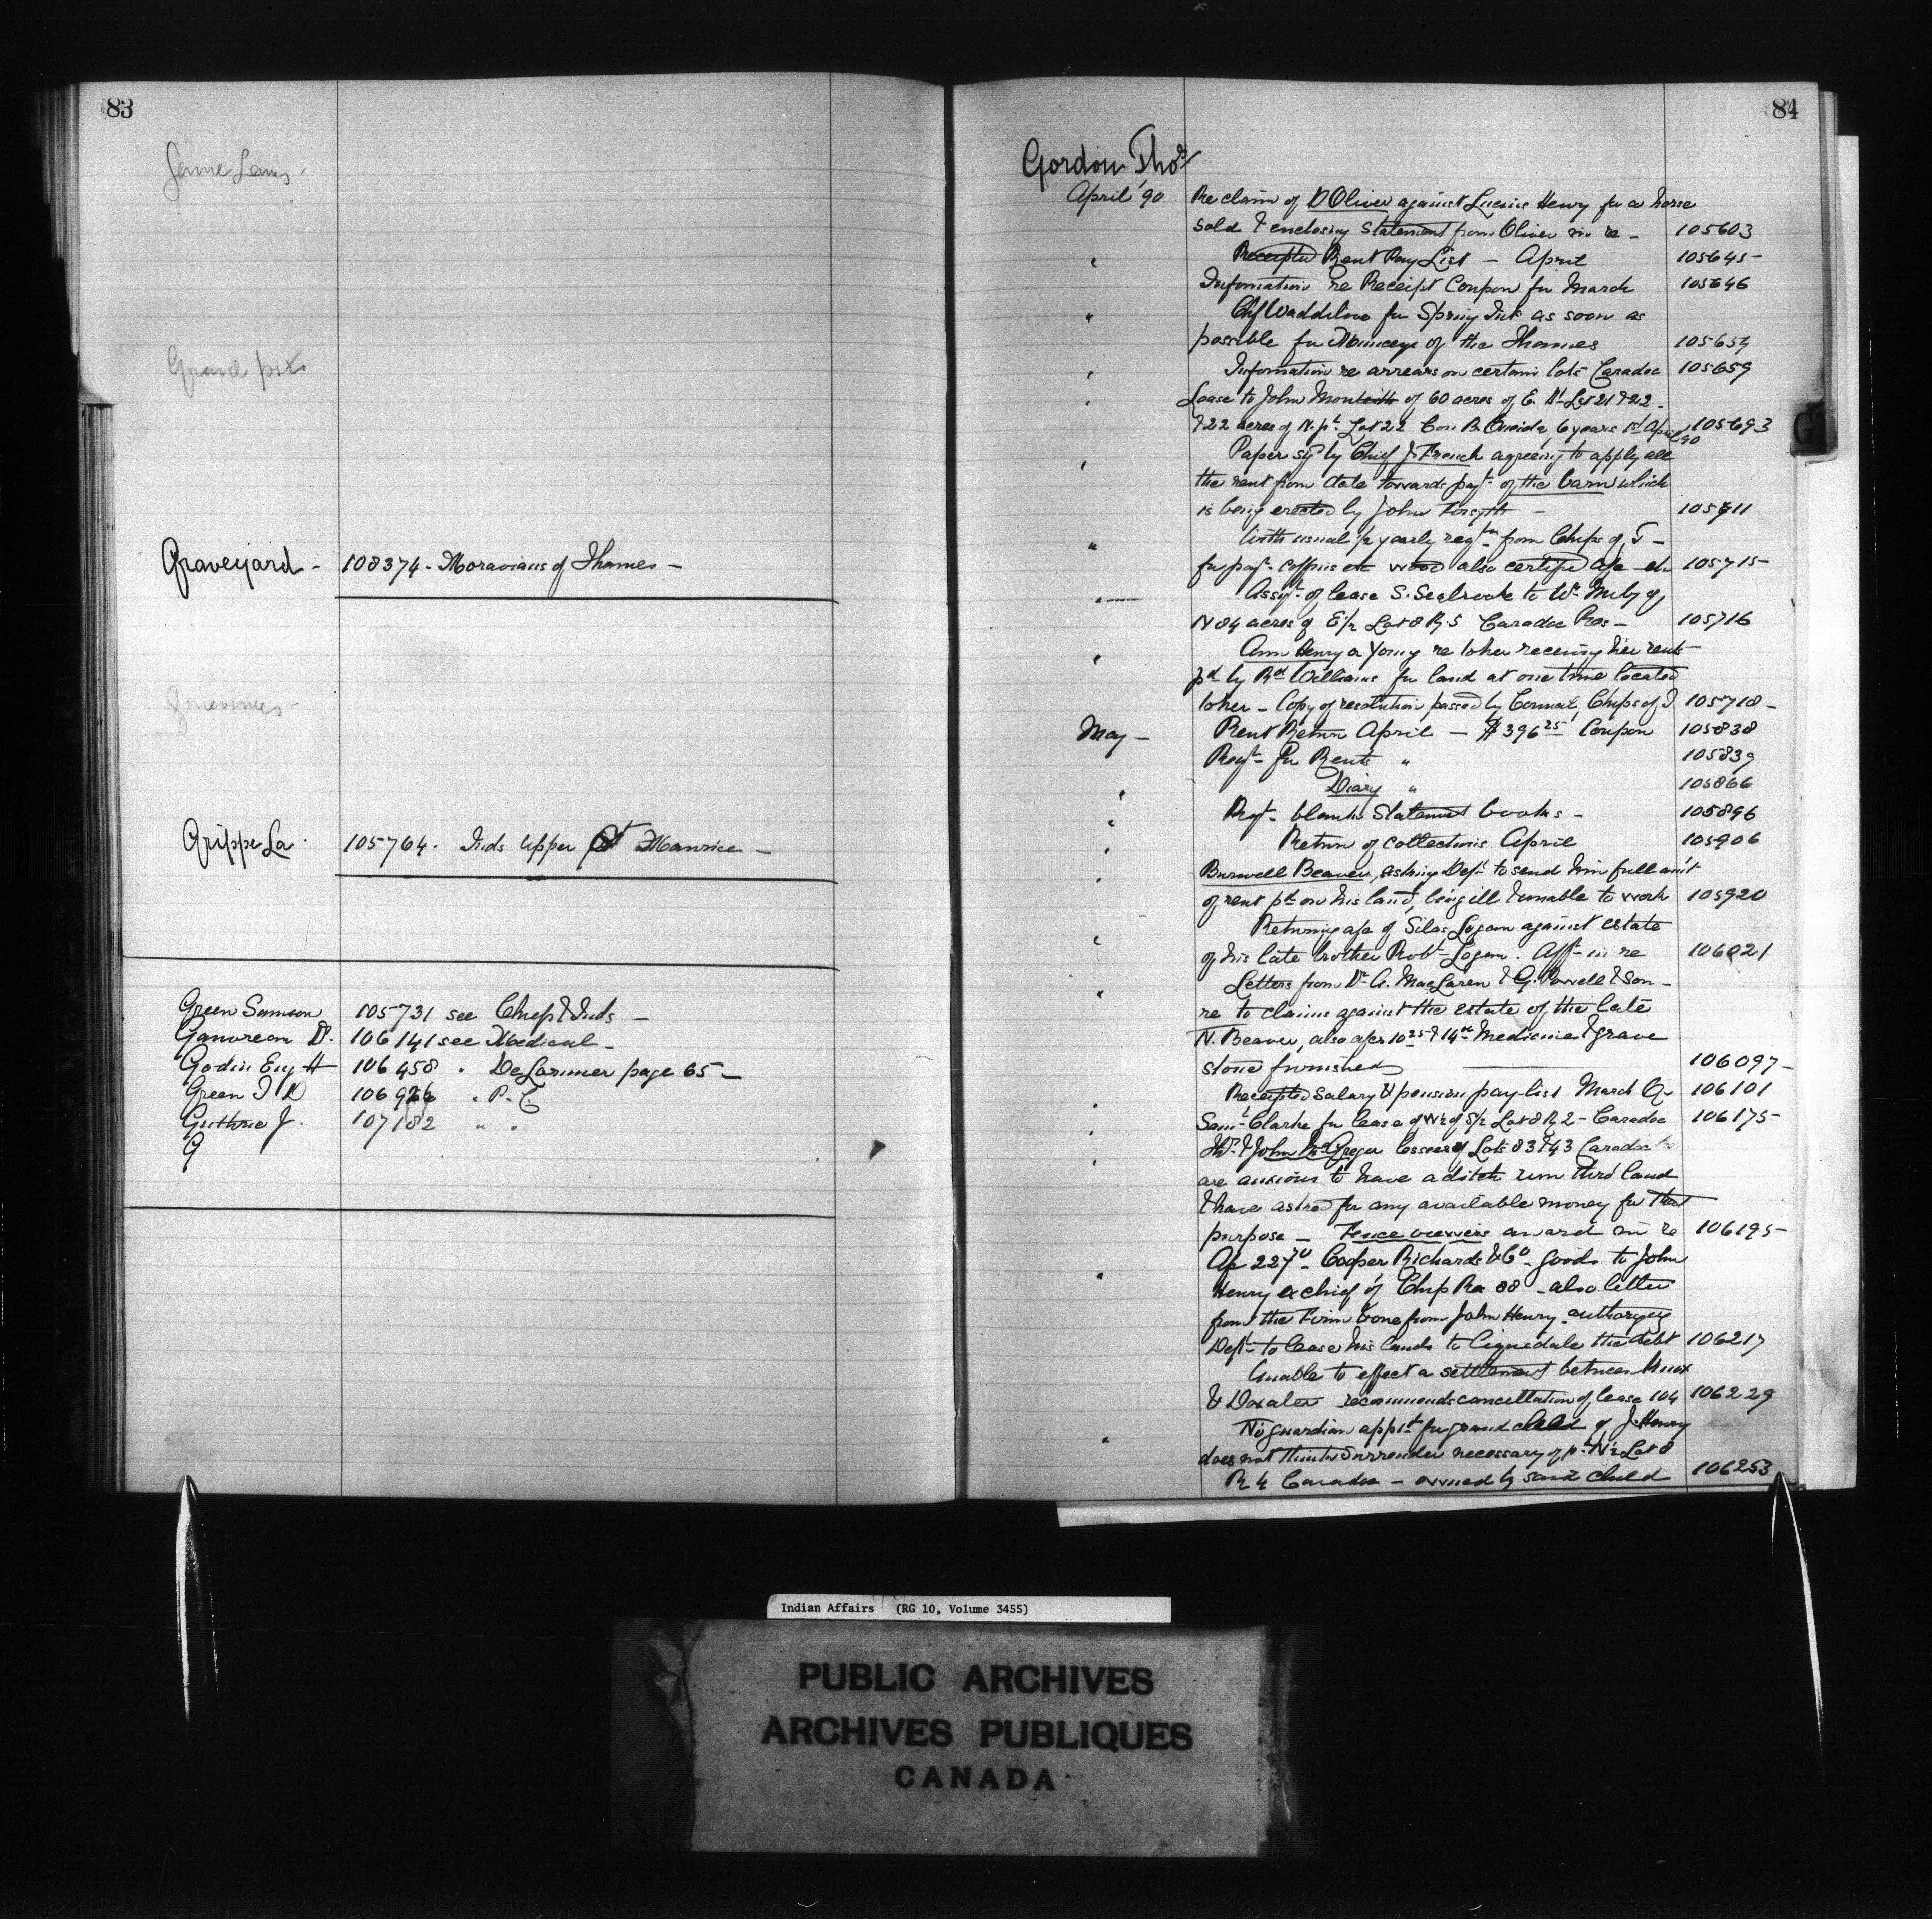 83
Game Laws
Gravel pits
Graveyard - 108374 - Moravians of Thames -
Grievances -
Grippe La. 105764. Inds Upper St Maurice -
Green Samson 105731 see Chips & Inds -
Ganvreau D. 106141 see Medical -
Godin Eug H 106458 " DeLorimer page 65 -
Green I D " P. C.
Guthrie J. 107182 " "
G
84
Gordon Thos
April '90 Re claim of D Oliver against Lucius Henry for a horse
sold & enclosing Statement from Oliver in re - 105603
" Receipted Rent Pay List - April 105645 -
Information re Receipt Coupon for March 105646
" Chf Waddilove for Spring Int as soon as
possible for Munceys of the Thames 105654
" Information re arrears on certain lots Caradoc 105659
" Lease to John Monteith of 60 acres of E. Pt Lot 21 & 22 -
& 22 acres of N. pt. Lot 22 Con B. Oneida, 6 years 1st April 90 105693
" Paper sg by Chief J. French agreeing to apply all
the rent from date towards payt of the barn which
is being erected by John Forsyth - 105711
" With usual 1/2 yearly reqtn from Chips of T -
for payt. coffins etc wood also certified a/c etc 105715 -
" Assgt. of lease S. Seabrook to Wm of
N 84 acres of E 1/2 Lot 8 R. 5 Caradoc Res - 105716
" Ann Henry or Young re to her receiving her rent -
pd by Rd Williams for land at one time located
to her - Copy of resolution passed by Council, Chips of T 105718 -
May - Rent Return April - $396.25 Coupon 105838
Reqt - for Rents " 105839
" Diary " 105866
" Reqt - blank Statement books - 105896
" Return of collections April 105906
" Burwell Beaver, asking Dept to send him full am't
of rent pd on his land, being ill & unable to work 105920
" Returning a/c of Silas Logan against estate
of his late brother Robt Logan. Afft in re 106021
" Letters from Dr A. MacLaren & G. Powell & Son -
re to claims against the estate of the late
N. Beaver, also a/cs 10.25 & 14.00 Medicine & grave
stone furnished 106097 -
" Receipted Salary & pension pay-list March Qr 106101
" Saml Clarke for lease of W 1/2 of S 1/2 Lot 8 R 2 - Caradoc 106175 -
" & John McGregor lessees of Lots 83 & 43 Caradoc
are anxious to have a ditch run thro' land
& have asked for any available money for that
purpose - Fence viewers award in re 106195 -
" A/c 227.70 - Cooper Richards & Co - goods to John
Henry ex chief of Chip Re 88 - also letter
from the Firm & one from John Henry - authorizing
Dept to lease his lands to liquidate the debt 106217
Unable to effect a settlement between Knox
& Doxater recommends cancellation of lease 104 106229
" No guardian appt for grand child of J. Henry
does not think surrender necessary of pt N 1/2 Lot 8
R 4 Caradoc - owned by said child 106253
G
Indian Affairs (RG 10, Volume 3455)
PUBLIC ARCHIVES
ARCHIVES PUBLIQUES
CANADA